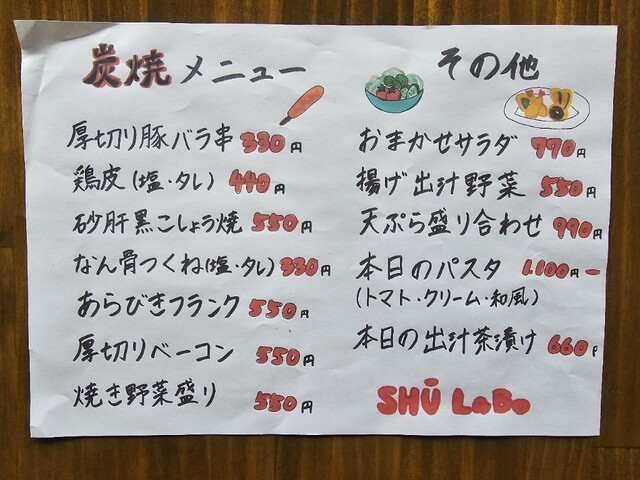 炭焼メニュー
厚切り豚バラ串 330円
鶏皮(塩・タレ) 440円
砂肝黒こしょう焼 550円
なん骨つくね(塩・タレ) 330円
あらびきフランク 550円
厚切りベーコン 550円
焼き野菜盛り 550円
その他
おまかせサラダ 770円
揚げ出汁野菜 550円
天ぷら盛り合わせ 990円
本日のパスタ 1,100円ー
(トマト・クリーム・和風)
本日の出汁茶漬け 660円
SHŪ LaBo